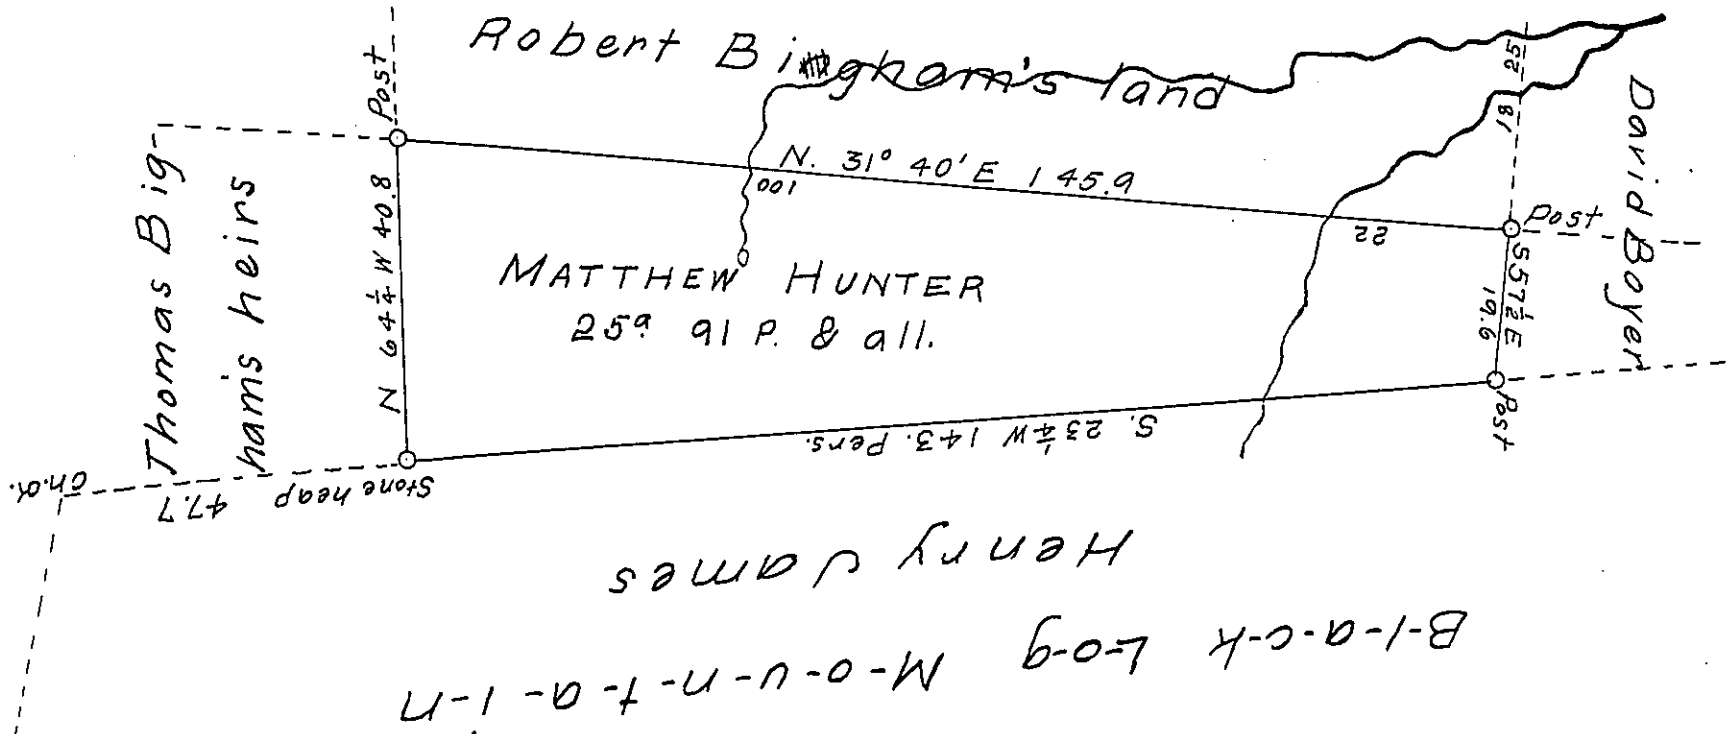 Robert Bingham's land
Post
25
81
David Boyer
Thomas Big-
ham's heirs
N 64 1/4 W 40.8
N. 31° 40' E 145.9
100
22
Post
S 57 1/2 E
19.6
MATTHEW HUNTER
25a 91 P. & all.
Post
S. 23 1/4 W 143. Pers.
Stone heap
47.7
Ch.O.
Henry James
B-l-a-c-k L-o-g M-o-u-n-t-a-i-n